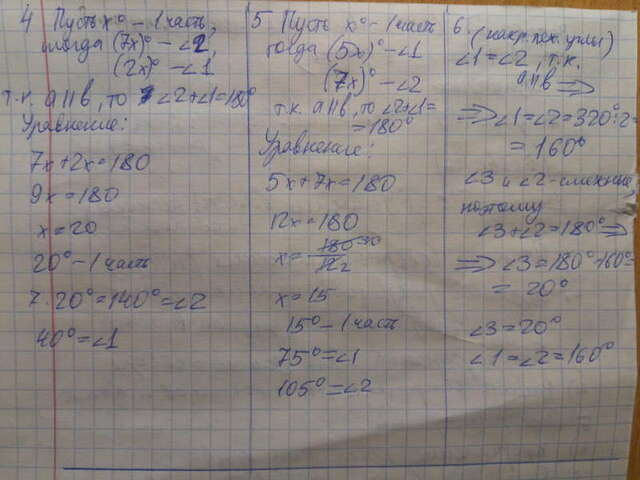 4 Пусть x° - 1 часть,
тогда (7x)° - ∠2,
(2x)° - ∠1
т.к. a||b, то ∠2+∠1=180°
Уравнение:
7x+2x=180
9x=180
x=20
20° - 1 часть
7·20°=140°=∠2
40°=∠1
5 Пусть x° - 1 часть
тогда (5x)° - ∠1
(7x)° - ∠2
т.к. a||b, то ∠2+∠1=
=180°
Уравнение:
5x+7x=180
12x=180
x=
x=15
15° - 1 часть
75°=∠1
105°=∠2
6. (накр. леж. углы)
∠1=∠2, т.к.
a||b ⇒
⇒ ∠1=∠2=320°:2=
=160°
∠3 и ∠2 - смежные,
поэтому
∠3+∠2=180° ⇒
⇒ ∠3=180°-160°=
=20°
∠3=20°
∠1=∠2=160°